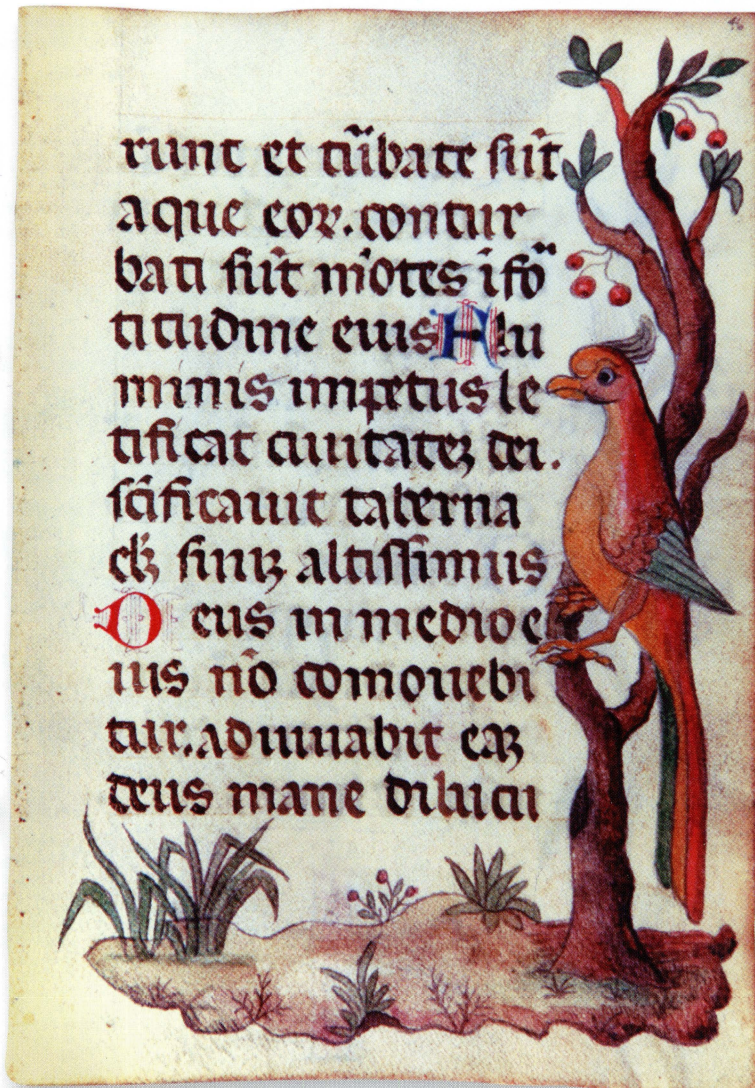 46
runt et tũbate sũt
aque eoꝝ. contur
bati sũt mõtes ĩ fo
titudine euis Flu
minis impetus le
tificat ciuitateʒ dei.
scĩficauit taberna
cl̃ʒ suuʒ altissimus
Deus in medio e
ius nõ comouebi
tur. adiuuabit eaʒ
deus mane dilucu